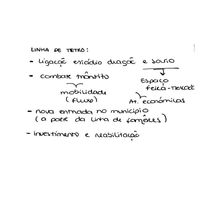 LINHA DE METRO:
- ligação estádio dragão e souto
Espaço
feira-mercado
- combate trânsito
mobilidade
(fluxo)
At. económicas
- nova entrada no município
(a partir da linha de)
- investimento e reabilitação